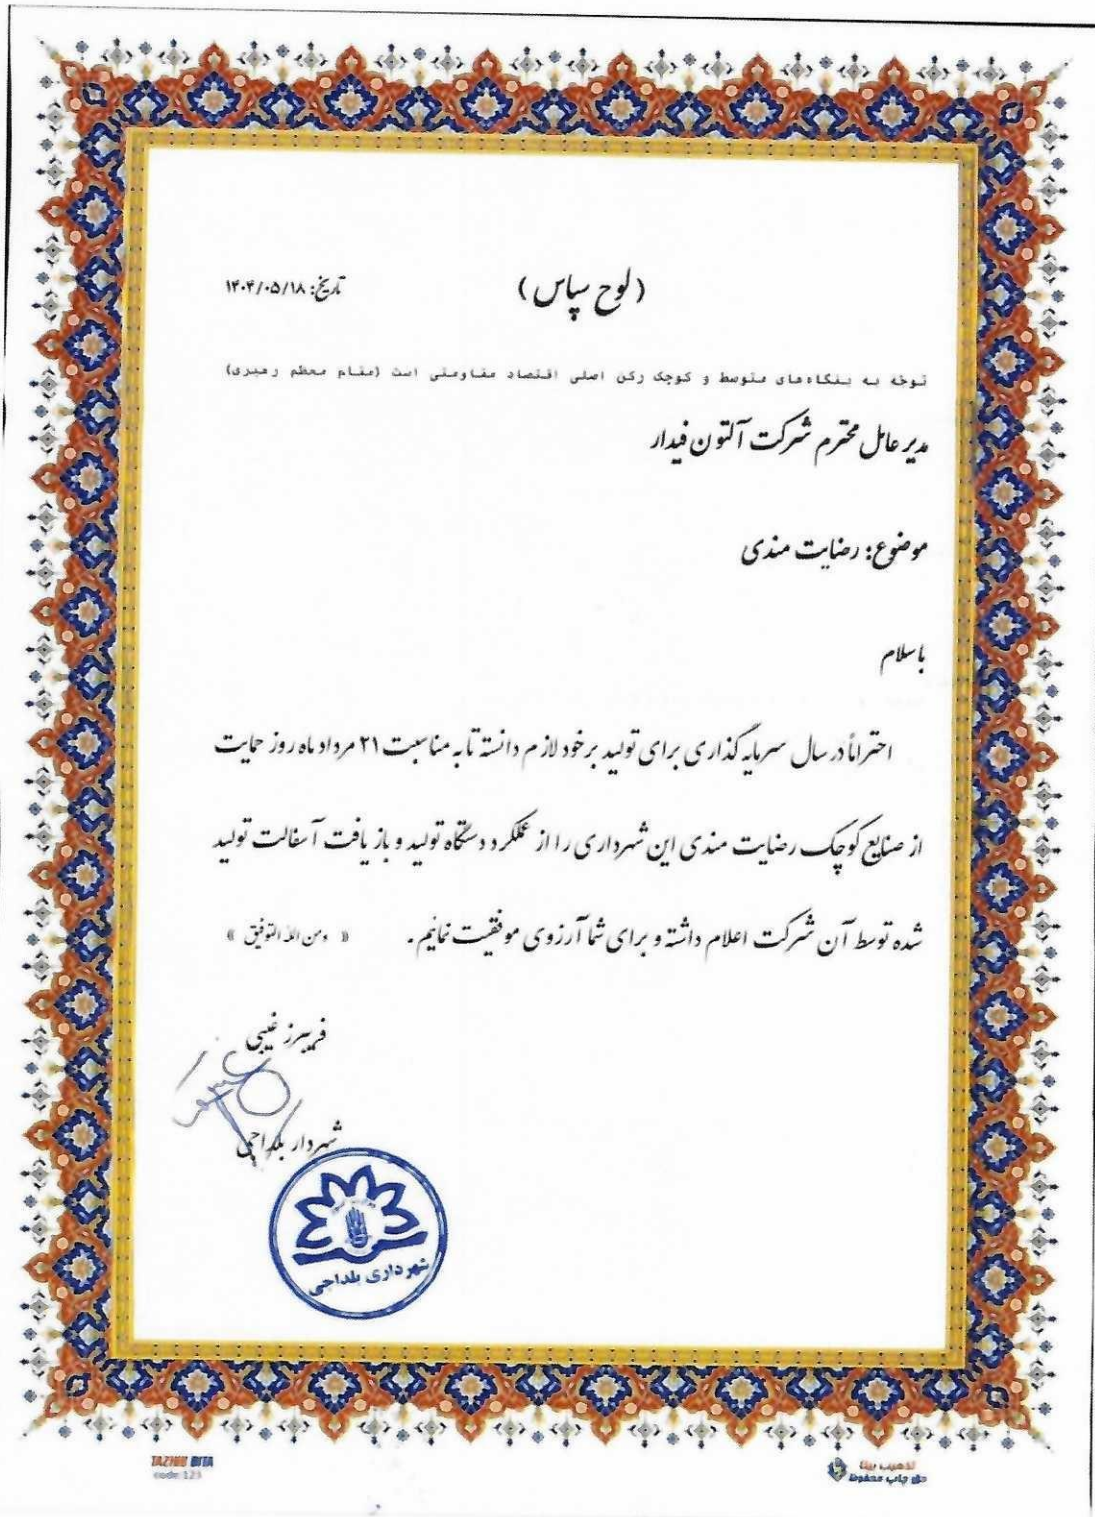 (لوح سپاس)
تاریخ: ۱۴۰۴/۰۵/۱۸
توجه به بنگاه‌های متوسط و کوچک رکن اصلی اقتصاد مقاومتی است (مقام معظم رهبری)
مدیر عامل محترم شرکت آلتون فیدار
موضوع: رضایت مندی
باسلام
احتراماً در سال سرمایه گذاری برای تولید بر خود لازم دانسته تا به مناسبت ۲۱ مرداد ماه روز حمایت
از صنایع کوچک رضایت مندی این شهرداری را از عملکرد دستگاه تولید و باز یافت آسفالت تولید
شده توسط آن شرکت اعلام داشته و برای شما آرزوی موفقیت نمائیم. « ومن الله التوفیق »
فریبرز غیبی
شهردار بلداجی
شهرداری بلداجی
TAZHIB BITA
code:123
تذهیب بیتا
حق چاپ محفوظ